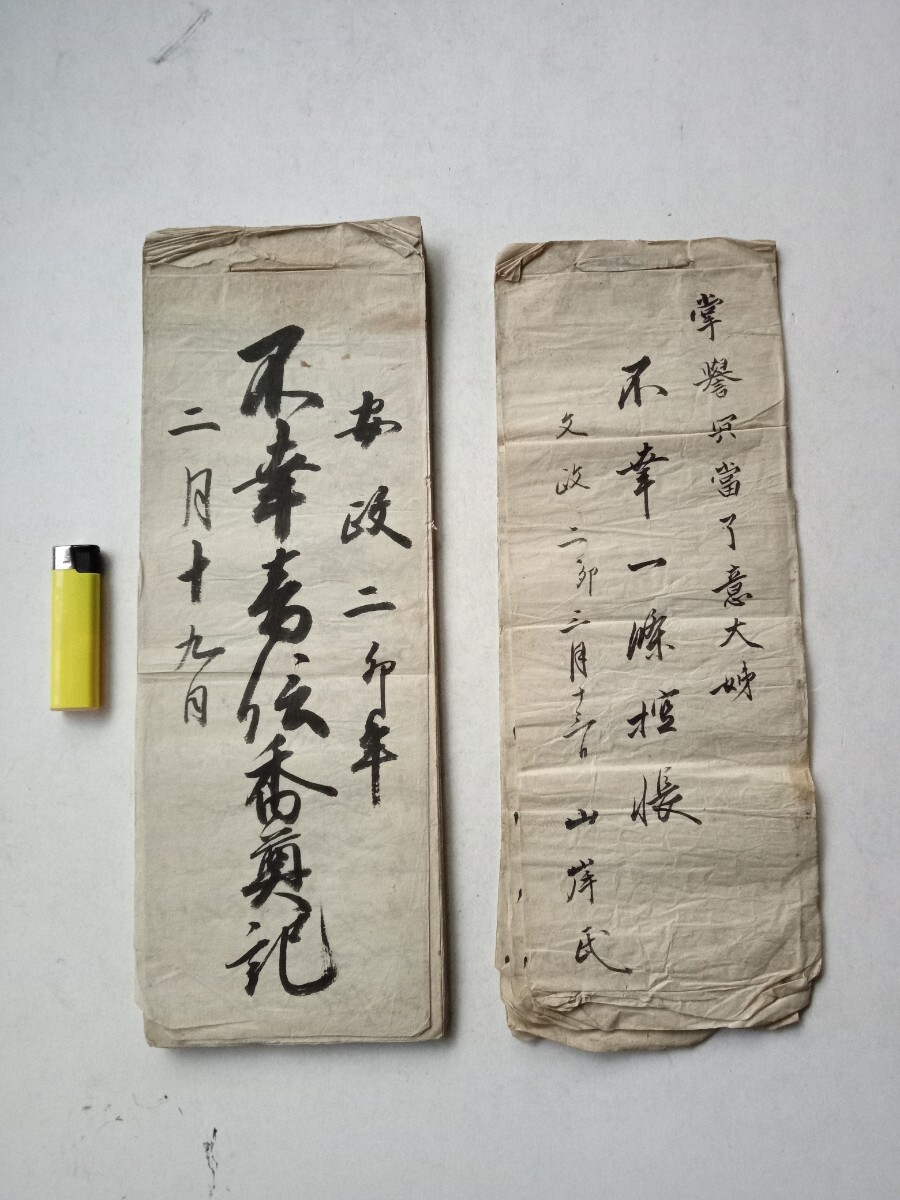 安政二卯年
不幸音信香奠記
二月十九日
掌譽當了意大姉
不幸一條控帳
文政二卯三月十三日 山岸氏